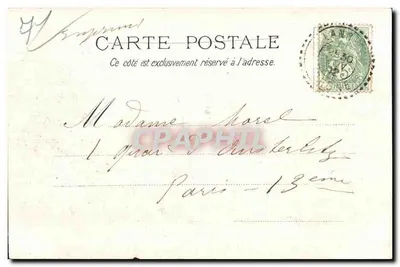 CARTE POSTALE
Ce côté est exclusivement réservé à l'adresse.
Madame Morel
CPAPHIL
1 quai d'Austerlitz
Paris - 13eme